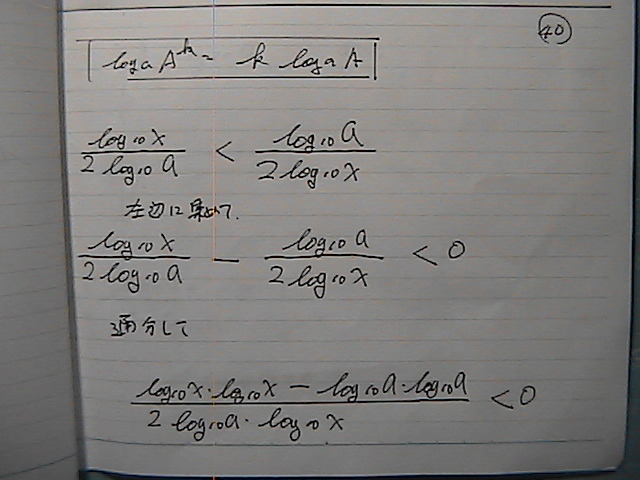 40
log_a A^k = k log_a A
\frac{log_{10} x}{2 log_{10} a} < \frac{log_{10} a}{2 log_{10} x}
左辺に集めて.
\frac{log_{10} x}{2 log_{10} a} - \frac{log_{10} a}{2 log_{10} x} < 0
通分して
\frac{log_{10} x · log_{10} x - log_{10} a · log_{10} a}{2 log_{10} a · log_{10} x} < 0